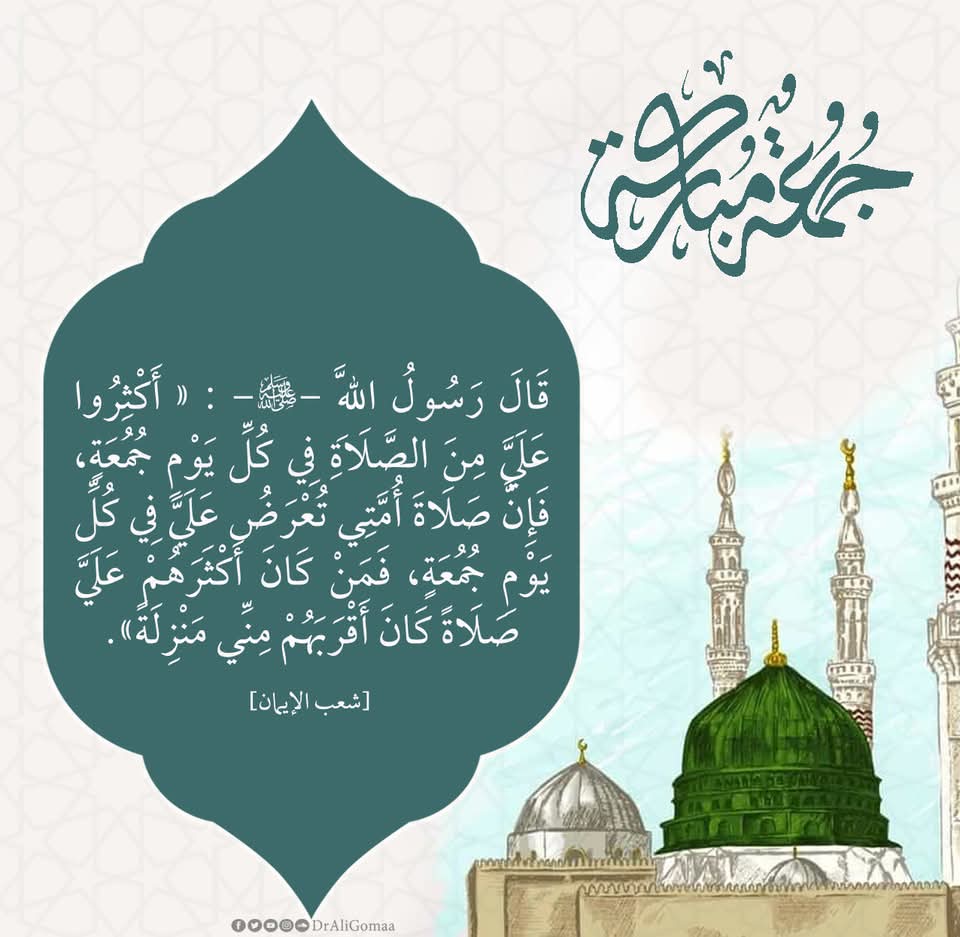 جمعة مباركة
قَالَ رَسُولُ اللهَّ –ﷺ– : « أَكْثِرُوا
عَلَيَّ مِنَ الصَّلَاةِ فِي كُلِّ يَوْمِ جُمُعَةٍ،
فَإِنَّ صَلَاةَ أُمَّتِي تُعْرَضُ عَلَيَّ فِي كُلِّ
يَوْمِ جُمُعَةٍ، فَمَنْ كَانَ أَكْثَرَهُمْ عَلَيَّ
صَلَاةً كَانَ أَقْرَبَهُمْ مِنِّي مَنْزِلَةً».
[شعب الإيمان]
DrAliGomaa